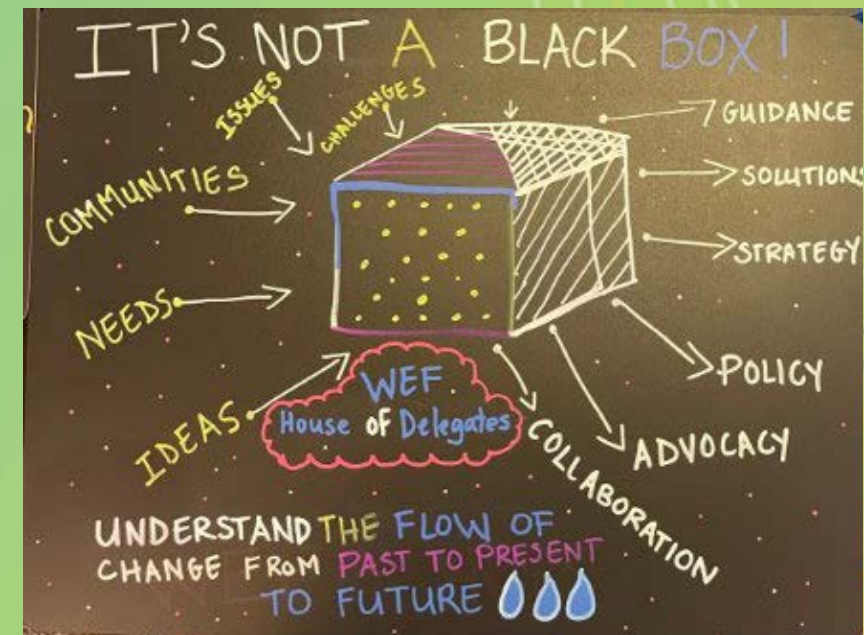 IT'S NOT A BLACK BOX!
ISSUES
CHALLENGES
COMMUNITIES
NEEDS
IDEAS
GUIDANCE
SOLUTIONS
STRATEGY
POLICY
ADVOCACY
COLLABORATION
WEF
House of Delegates
UNDERSTAND THE FLOW OF
CHANGE FROM PAST TO PRESENT
TO FUTURE